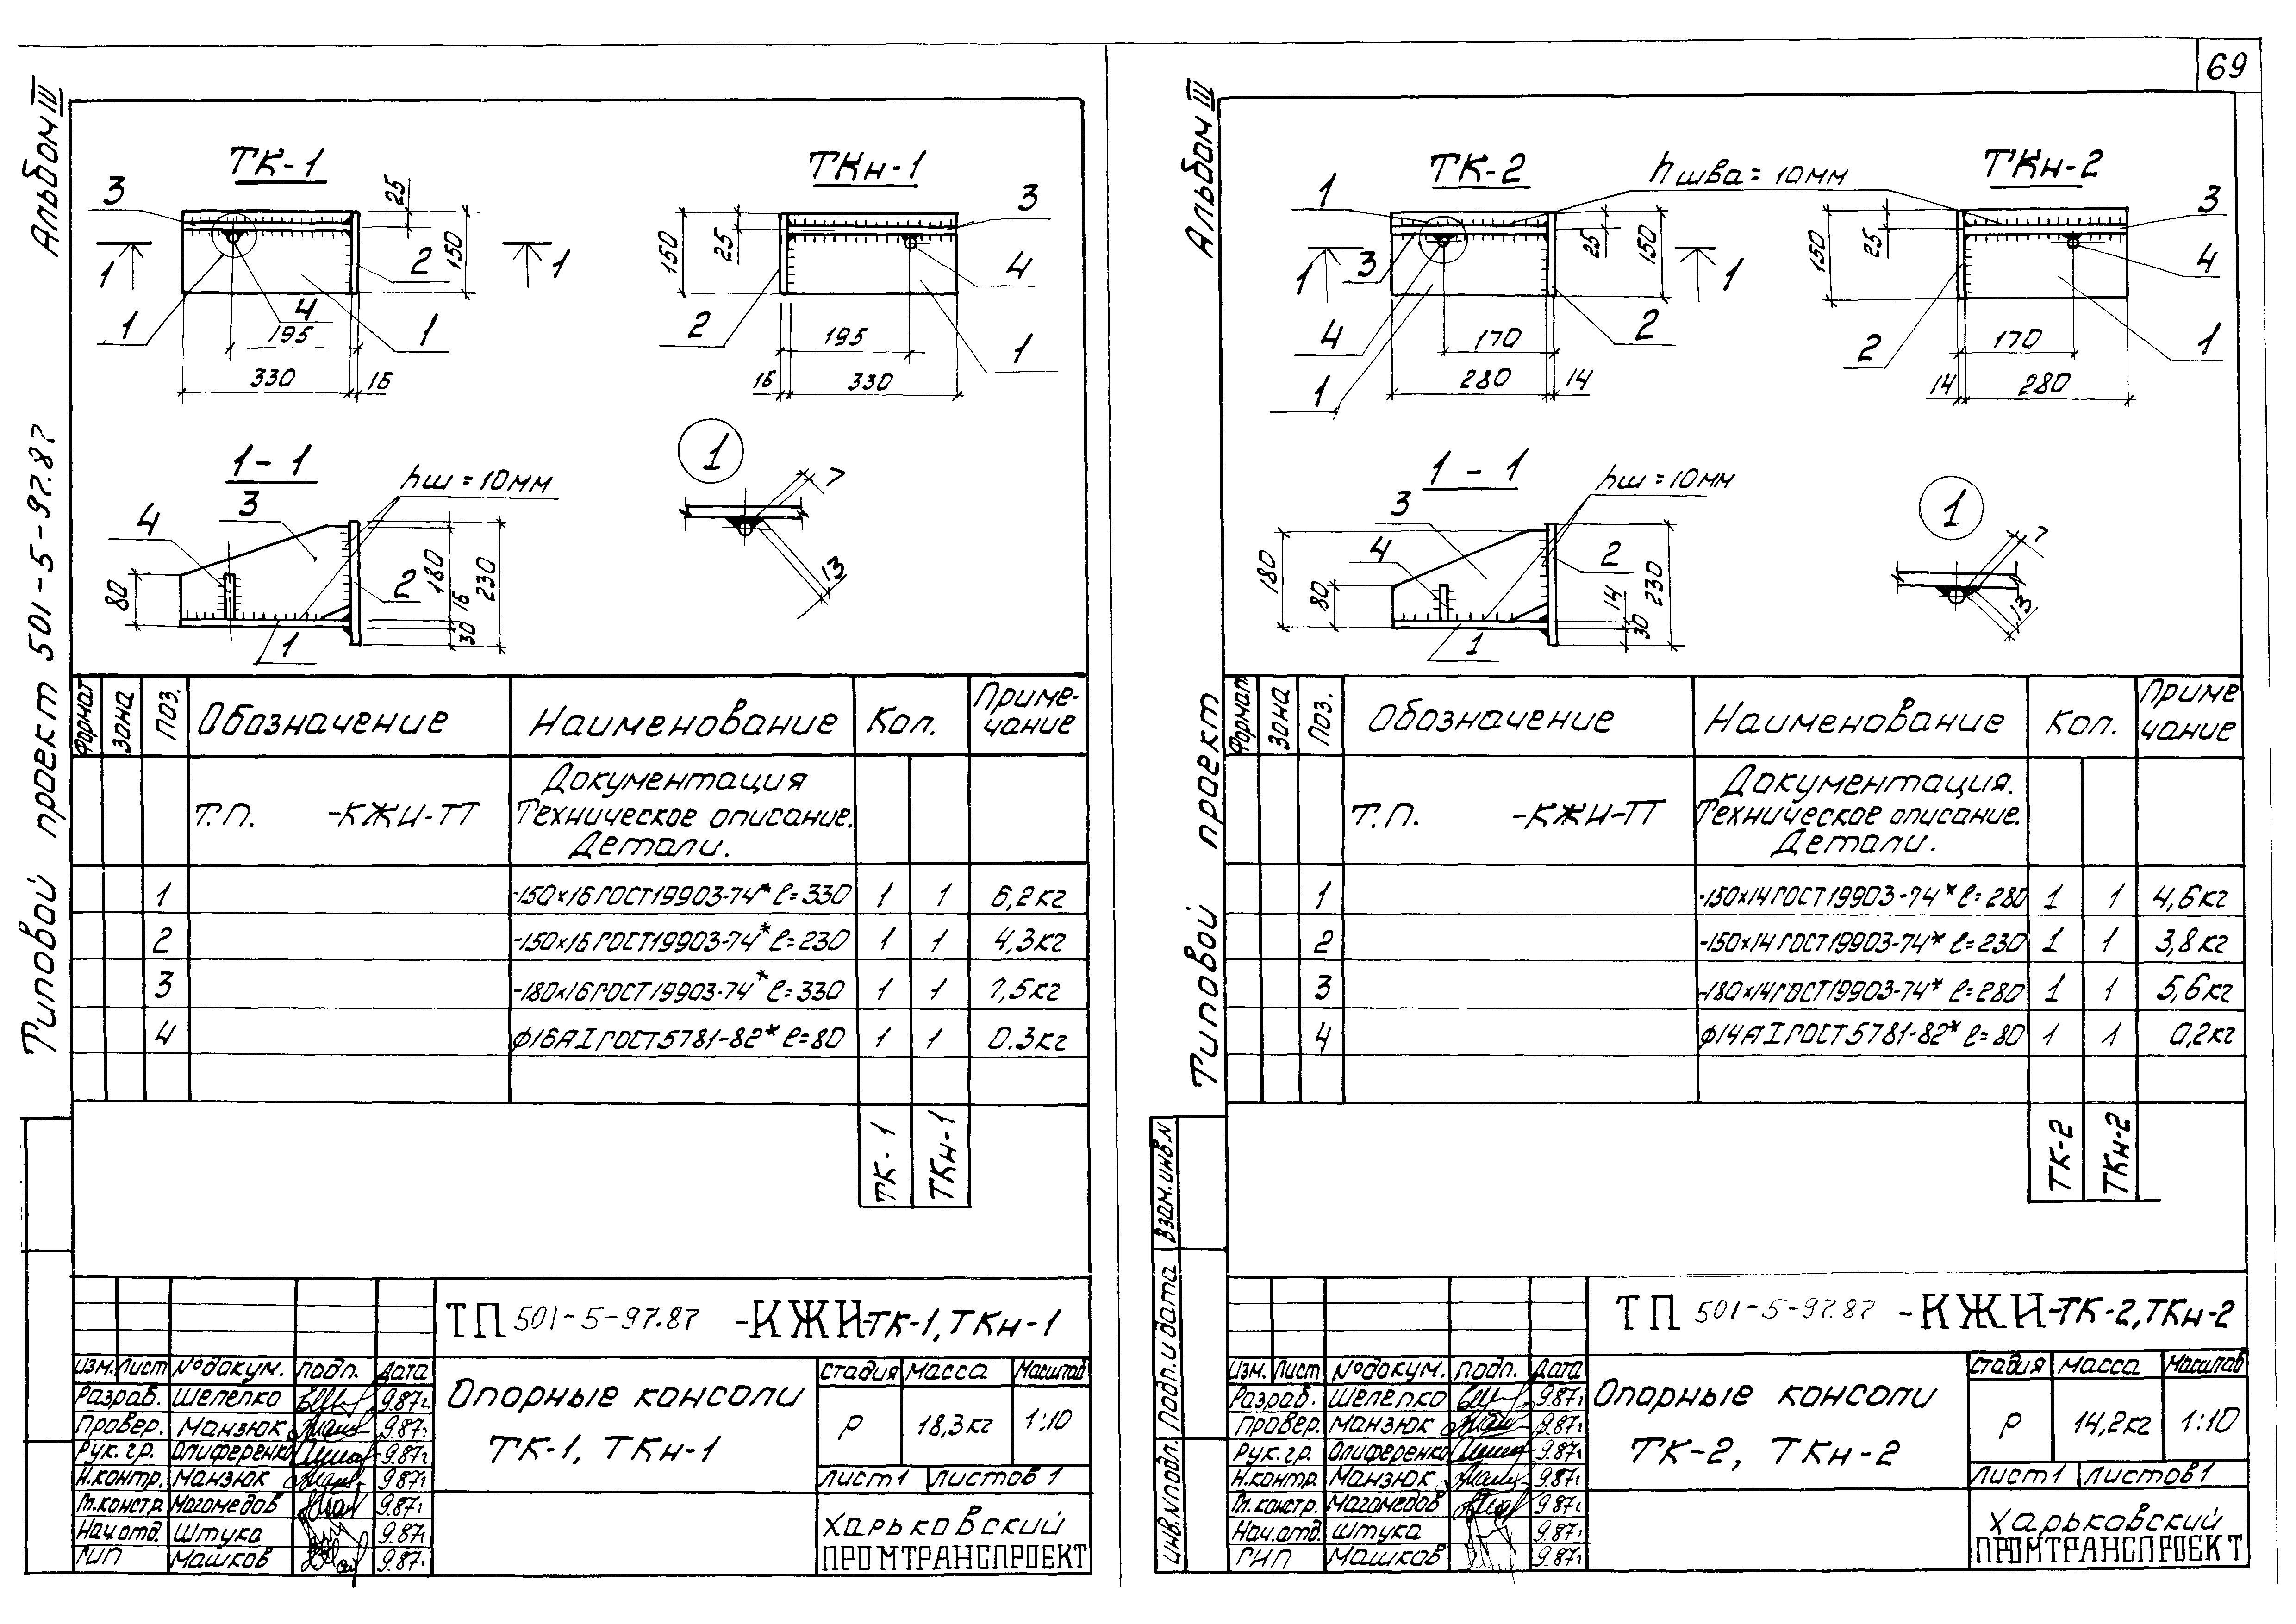 69
Альбом III
Типовой проект 501-5-97.87
ТК-1
ТКн-1
3
25
150
1
1
2
1
4
195
1
330
16
3
150
25
4
2
195
1
16
330
1-1
3
hш=10мм
4
80
2
180
16
30
230
1
1
7
13
Формат
Зона
Поз.
Обозначение
Наименование
Кол.
Приме-
чание
Документация
Т.П. -КЖИ-ТТ
Техническое описание.
Детали.
1 -150х16 ГОСТ19903-74* ℓ=330 1 1 6,2кг
2 -150х16 ГОСТ19903-74* ℓ=230 1 1 4,3кг
3 -180х16 ГОСТ19903-74* ℓ=330 1 1 7,5кг
4 ф16АI ГОСТ5781-82* ℓ=80 1 1 0.3кг
ТК-1
ТКн-1
ТП 501-5-97.87 -КЖИ-ТК-1, ТКн-1
Изм. Лист №докум. подп. Дата
Разраб. Шелепко 9.87г.
Провер. Манзюк 9.87г.
Рук. гр. Олиференко 9.87г.
Н.контр. Манзюк 9.87г.
Гл.констр. Магомедов 9.87г.
Нач.отд. Штука 9.87г.
ГИП Машков 9.87г.
Опорные консоли
ТК-1, ТКн-1
стадия масса Масштаб
Р 18,3кг 1:10
Лист 1 Листов 1
Харьковский
ПРОМТРАНСПРОЕКТ
Альбом III
Типовой проект
ТК-2
hшва=10мм
ТКн-2
1
1
3
4
1
25
150
1
2
170
280
14
150
25
3
4
2
1
170
14
280
1-1
3
hш=10мм
4
180
80
2
14
30
230
1
1
7
13
Формат
Зона
Поз.
Обозначение
Наименование
Кол.
Приме
чание
Документация.
Т.П. -КЖИ-ТТ
Техническое описание.
Детали.
1 -150х14 ГОСТ19903-74* ℓ=280 1 1 4,6кг
2 -150х14 ГОСТ19903-74* ℓ=230 1 1 3,8кг
3 -180х14 ГОСТ19903-74* ℓ=280 1 1 5,6кг
4 ф14АI ГОСТ5781-82* ℓ=80 1 1 0,2кг
ТК-2
ТКн-2
Взам.инв.N
Подп. и дата
Инв.Nподл.
ТП 501-5-97.87 -КЖИ-ТК-2, ТКн-2
Изм. Лист №докум. подп. Дата
Разраб. Шелепко 9.87г.
Провер. Манзюк 9.87г.
Рук. гр. Олиференко 9.87г.
Н.контр. Манзюк 9.87г.
Гл.констр. Магомедов 9.87г.
Нач.отд. Штука 9.87г.
ГИП Машков 9.87г.
Опорные консоли
ТК-2, ТКн-2
стадия масса Масштаб
Р 14,2кг 1:10
Лист 1 Листов 1
Харьковский
ПРОМТРАНСПРОЕКТ